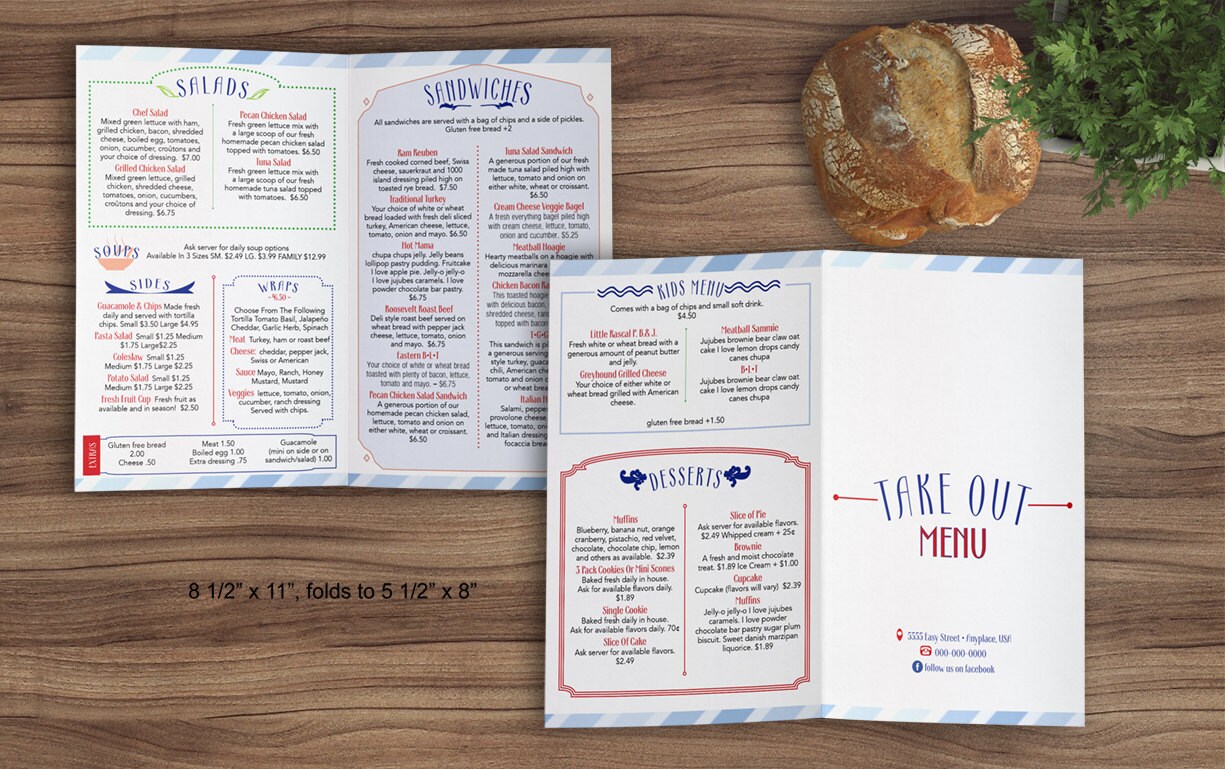 SALADS
Chef Salad
Mixed green lettuce with ham,
grilled chicken, bacon, shredded
cheese, boiled egg, tomatoes,
onion, cucumber, croûtons and
your choice of dressing. $7.00
Grilled Chicken Salad
Mixed green lettuce, grilled
chicken, shredded cheese,
tomatoes, onion, cucumbers,
croûtons and your choice of
dressing. $6.75
Pecan Chicken Salad
Fresh green lettuce mix with
a large scoop of our fresh
homemade pecan chicken salad
topped with tomatoes. $6.50
Tuna Salad
Fresh green lettuce mix with
a large scoop of our fresh
homemade tuna salad topped
with tomatoes. $6.50
SOUPS
Ask server for daily soup options
Available In 3 Sizes SM. $2.49 LG. $3.99 FAMILY $12.99
SIDES
Guacamole & Chips Made fresh
daily and served with tortilla
chips. Small $3.50 Large $4.95
Pasta Salad Small $1.25 Medium
$1.75 Large$2.25
Coleslaw Small $1.25
Medium $1.75 Large $2.25
Potato Salad Small $1.25
Medium $1.75 Large $2.25
Fresh Fruit Cup Fresh fruit as
available and in season! $2.50
WRAPS
~$6.50~
Choose From The Following
Tortilla Tomato Basil, Jalapeño
Cheddar, Garlic Herb, Spinach
Meat Turkey, ham or roast beef
Cheese: cheddar, pepper jack,
Swiss or American
Sauce Mayo, Ranch, Honey
Mustard, Mustard
Veggies lettuce, tomato, onion,
cucumber, ranch dressing
Served with chips.
EXTRAS
Gluten free bread
2.00
Cheese .50
Meat 1.50
Boiled egg 1.00
Extra dressing .75
Guacamole
(mini on side or on
sandwich/salad) 1.00
SANDWICHES
All sandwiches are served with a bag of chips and a side of pickles.
Gluten free bread +2
Ram Reuben
Fresh cooked corned beef, Swiss
cheese, sauerkraut and 1000
island dressing piled high on
toasted rye bread. $7.50
Traditional Turkey
Your choice of white or wheat
bread loaded with fresh deli sliced
turkey, American cheese, lettuce,
tomato, onion and mayo. $6.50
Hot Mama
chupa chups jelly. Jelly beans
lollipop pastry pudding. Fruitcake
I love apple pie. Jelly-o jelly-o
I love jujubes caramels. I love
powder chocolate bar pastry.
$6.75
Roosevelt Roast Beef
Deli style roast beef served on
wheat bread with pepper jack
cheese, lettuce, tomato, onion
and mayo. $6.75
Eastern B•L•T
Your choice of white or wheat
toasted with plenty of bacon, lettuce,
tomato and mayo. – $6.75
Pecan Chicken Salad Sandwich
A generous portion of our
homemade pecan chicken salad,
lettuce, tomato and onion on
either white, wheat or croissant.
$6.50
Tuna Salad Sandwich
A generous portion of our fresh
made tuna salad piled high with
lettuce, tomato and onion on
either white, wheat or croissant.
$6.50
Cream Cheese Veggie Bagel
A fresh everything bagel piled high
with cream cheese, lettuce, tomato,
onion and cucumber. $5.25
Meatball Hoagie
Hearty meatballs on a hoagie with
delicious marinara
mozzarella
Chicken Bacon
This toasted hoagie
with delicious bacon,
shredded cheese,
topped with bacon
This sandwich is
a generous serving
style turkey,
chili, American
tomato and onion
or wheat
Italian
Salami,
provolone cheese,
lettuce, tomato,
and Italian dressing
focaccia
KIDS MENU
Comes with a bag of chips and small soft drink.
$4.50
Little Rascal P. B.& J.
Fresh white or wheat bread with a
generous amount of peanut butter
and jelly.
Greyhound Grilled Cheese
Your choice of either white or
wheat bread grilled with American
cheese.
Meatball Sammie
Jujubes brownie bear claw oat
cake I love lemon drops candy
canes chupa
B•L•T
Jujubes brownie bear claw oat
cake I love lemon drops candy
canes chupa
gluten free bread +1.50
DESSERTS
Muffins
Blueberry, banana nut, orange
cranberry, pistachio, red velvet,
chocolate, chocolate chip, lemon
and others as available. $2.39
3 Pack Cookies Or Mini Scones
Baked fresh daily in house.
Ask for available flavors daily.
$1.89
Single Cookie
Baked fresh daily in house.
Ask for available flavors daily. 70¢
Slice Of Cake
Ask server for available flavors.
$2.49
Slice of Pie
Ask server for available flavors.
$2.49 Whipped cream + 25¢
Brownie
A fresh and moist chocolate
treat. $1.89 Ice Cream + $1.00
Cupcake
Cupcake (flavors will vary) $2.39
Muffins
Jelly-o jelly-o I love jujubes
caramels. I love powder
chocolate bar pastry sugar plum
biscuit. Sweet danish marzipan
liquorice. $1.89
TAKE OUT
MENU
5555 Easy Street • Anyplace, USA
000-000-0000
follow us on facebook
8 1/2” x 11”, folds to 5 1/2” x 8”